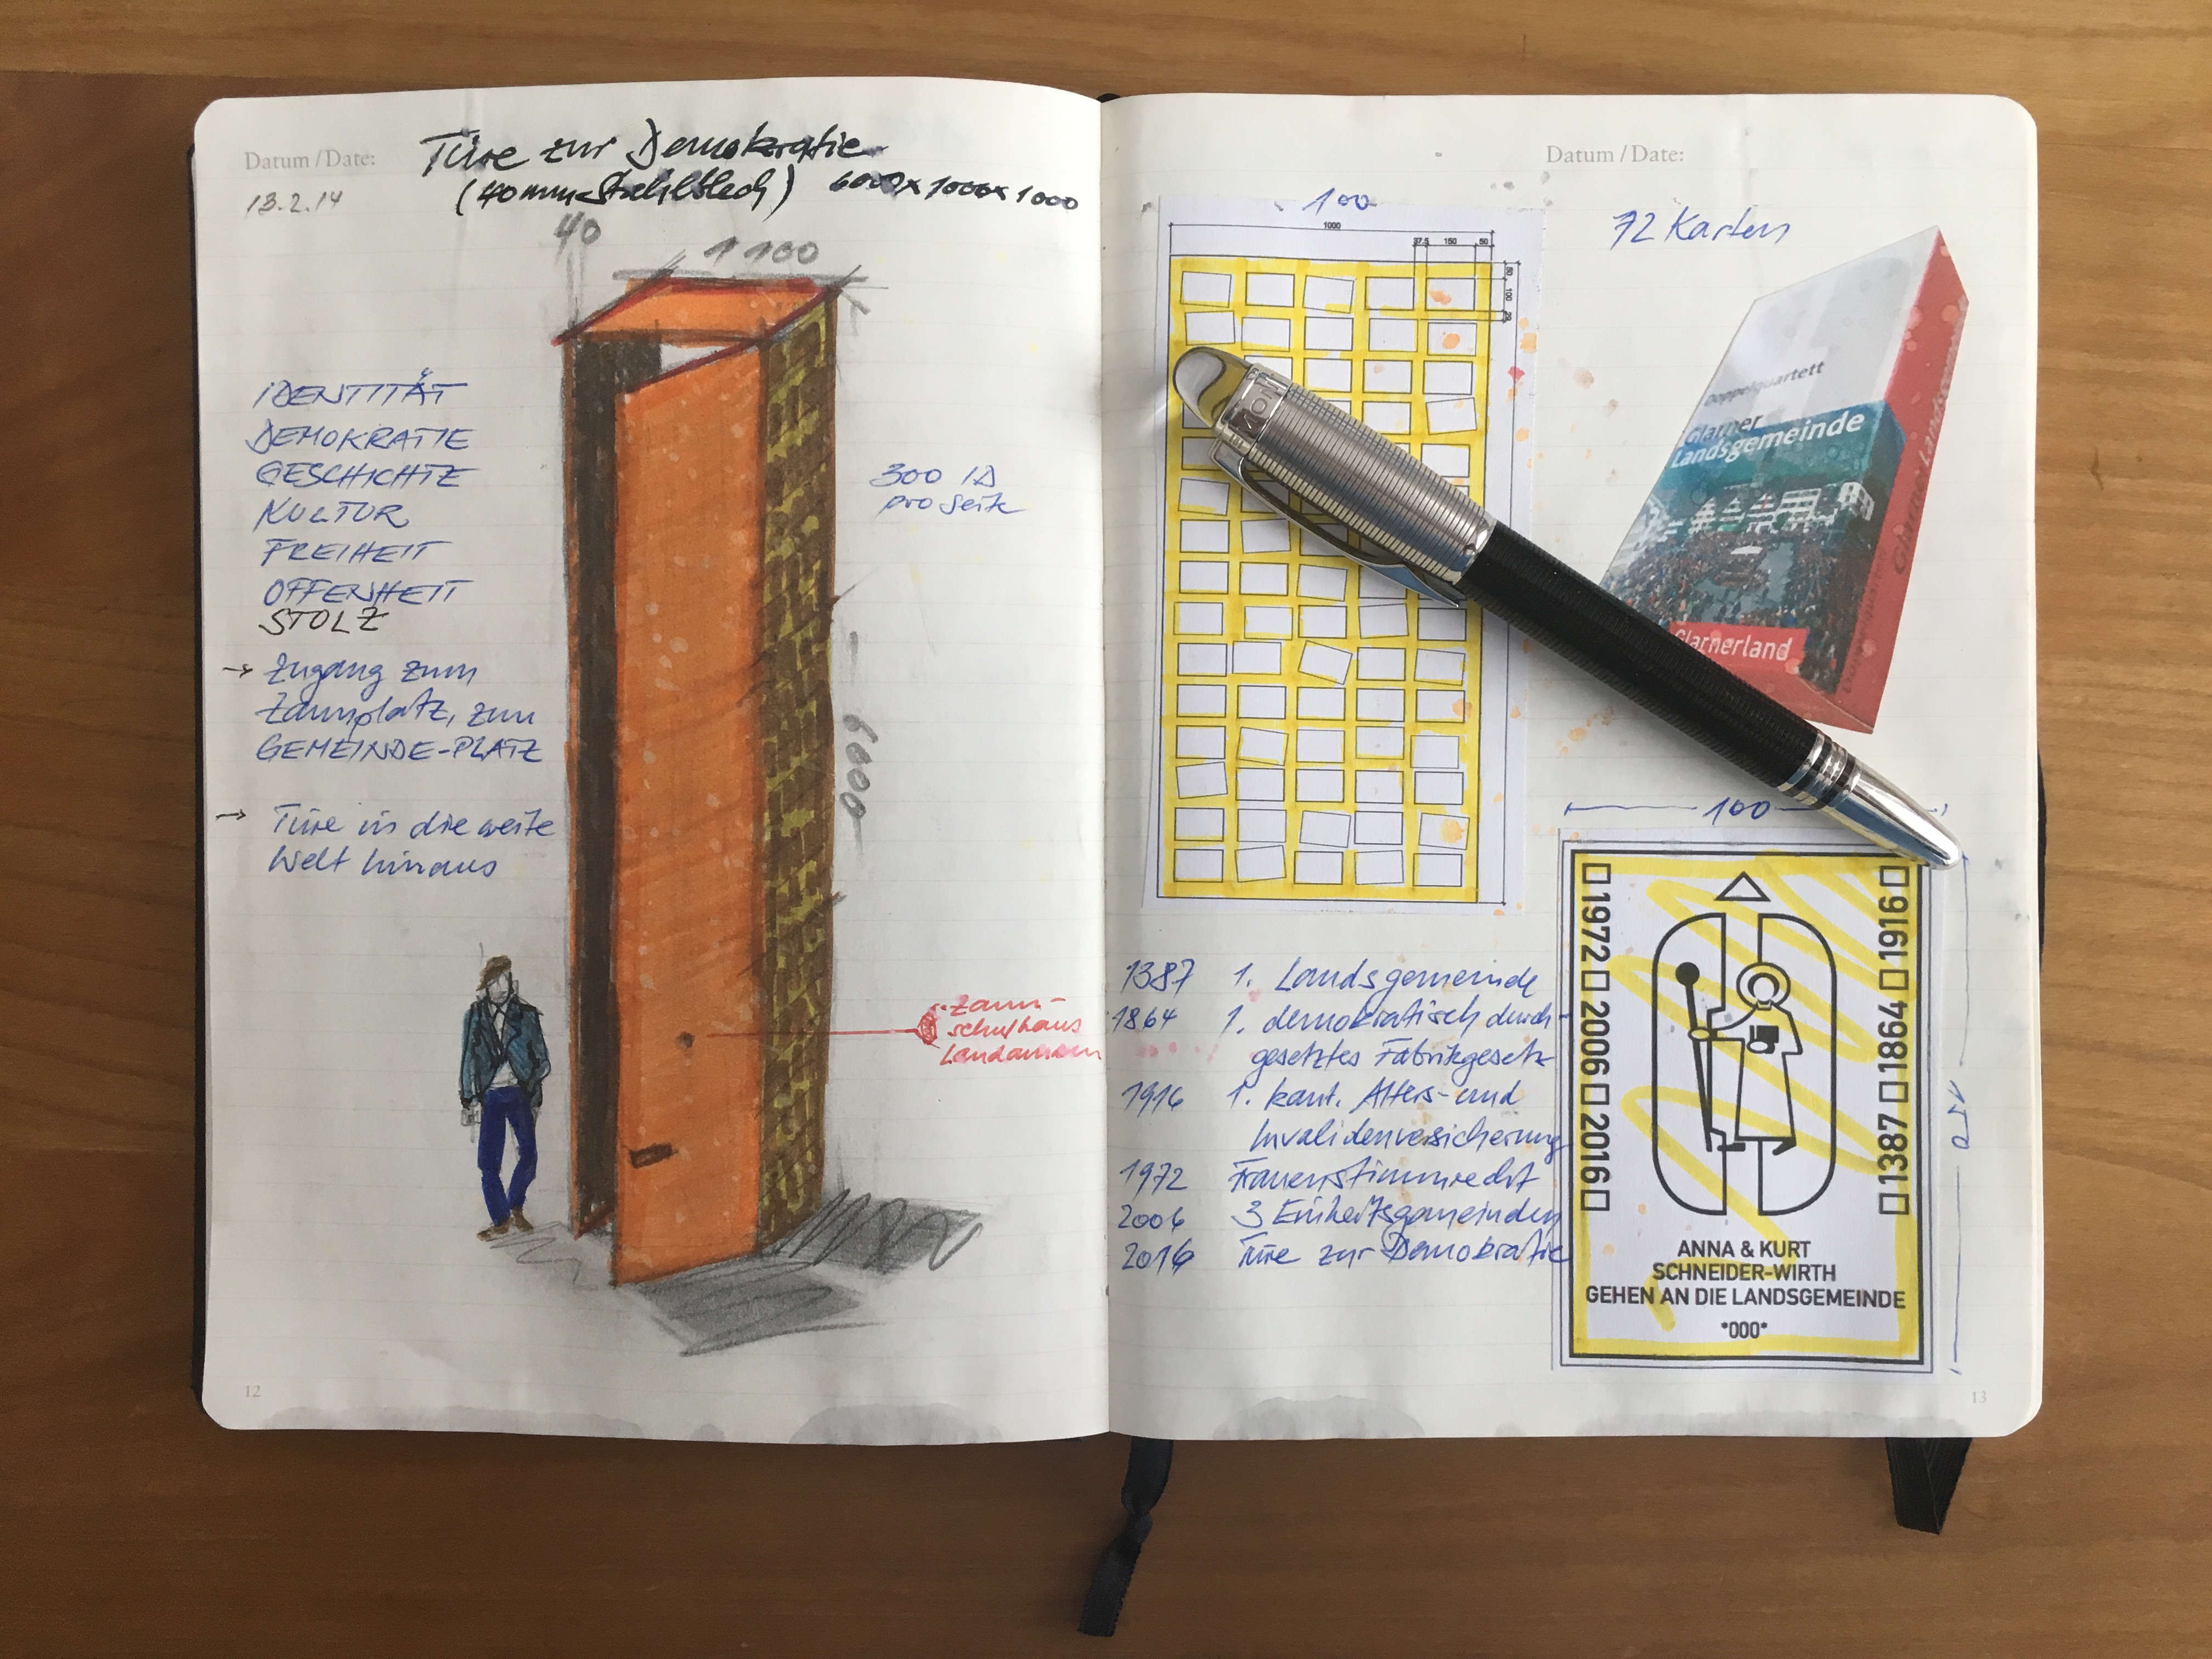 Datum / Date:
13.2.14
Türe zur Demokratie
(40mm Stahlblech) 6000x1000x1000
40
1100
IDENTITÄT
DEMOKRATIE
GESCHICHTE
KULTUR
FREIHEIT
OFFENHEIT
STOLZ
→ Zugang zum
Zaunplatz, zum
GEMEINDE-PLATZ
→ Türe in die weite
Welt hinaus
300 ID
pro Seite
6000
Zaun-
schulhaus
Landamman
12
Datum / Date:
100
1000
37.5 150 50
50
100
20
72 Karten
Doppelquartett
Glarner
Landsgemeinde
Glarnerland
Glarner Landsgemeinde
1387 1. Landsgemeinde
1864 1. demokratisch durch-
gesetztes Fabrikgesetz
1916 1. kant. Alters- und
Invalidenversicherung
1972 Frauenstimmrecht
2006 3 Einheitsgemeinden
2016 Türe zur Demokratie
100
150
□1972□2006□2016□
□1387□1864□1916□
ANNA & KURT
SCHNEIDER-WIRTH
GEHEN AN DIE LANDSGEMEINDE
*000*
13